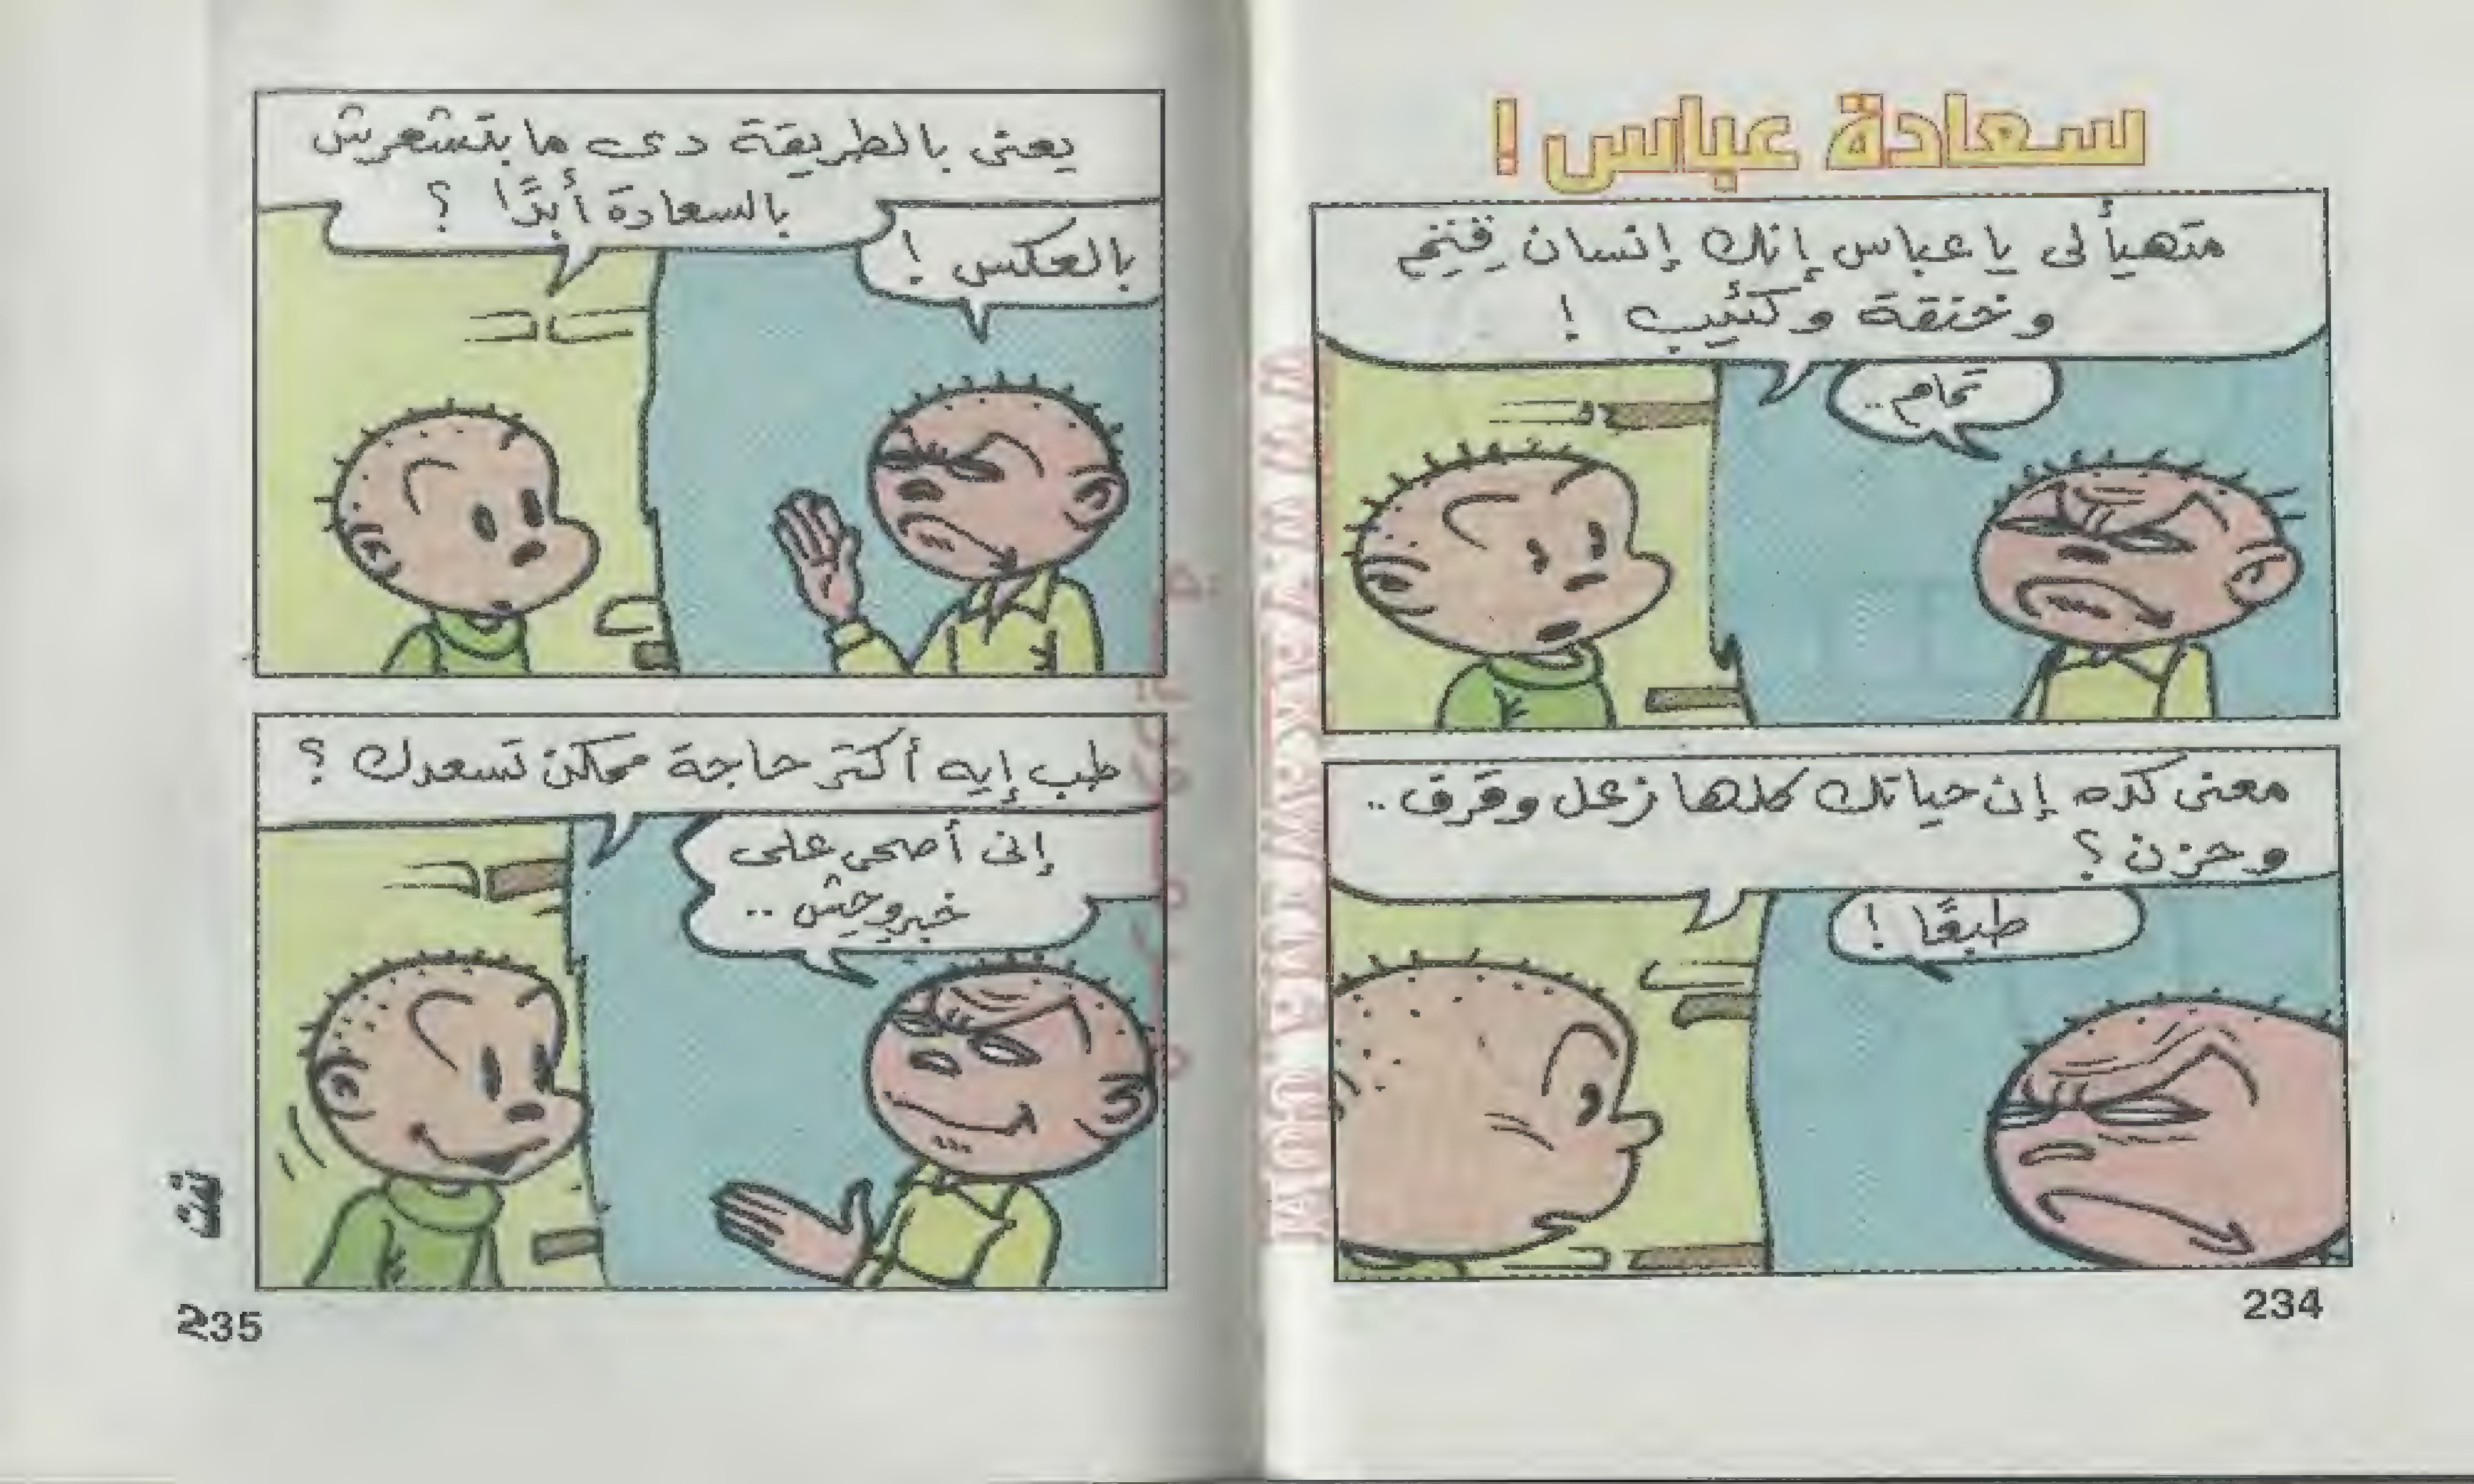 سعادة عباس !
متهيأ لى يا عباس إنك إنسان
وخنقة وكئيب !
تمام ..
معنى كده إن حياتك كلها زعل وقرف ..
وحزن ؟
طبعًا !
234
يعنى بالطريقة دى ما بتشعرش
بالسعادة أبدًا ؟
بالعكس !
طب إيه أكتر حاجة ممكن تسعدك ؟
إنى أصحى على
خبر وحش ..
235